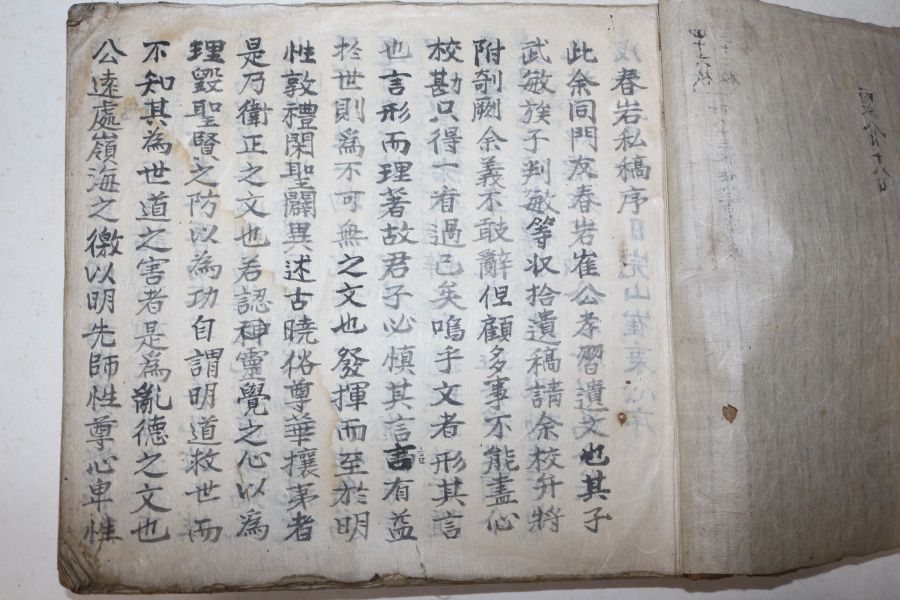 春岩私稿序
此余同門友春岩崔公孝習遺文也其子
武敏族子判敏等収拾遺稿請余校弁將
附剞劂余義不敢辭但顧多事不能盡心
校勘只得一看過已矣嗚乎文者形其言
也言形而理著故君子必慎其言言有益
於世則爲不可無之文也發揮而至於明
性敦禮閑聖闢異述古曉俗尊華攘夷者
是乃衛正之文也若認神靈覺之心以爲
理毀聖賢之防以為功自謂明道救世而
不知其為世道之害者是爲亂德之文也
公遠處嶺海之徼以明先師性尊心卑性